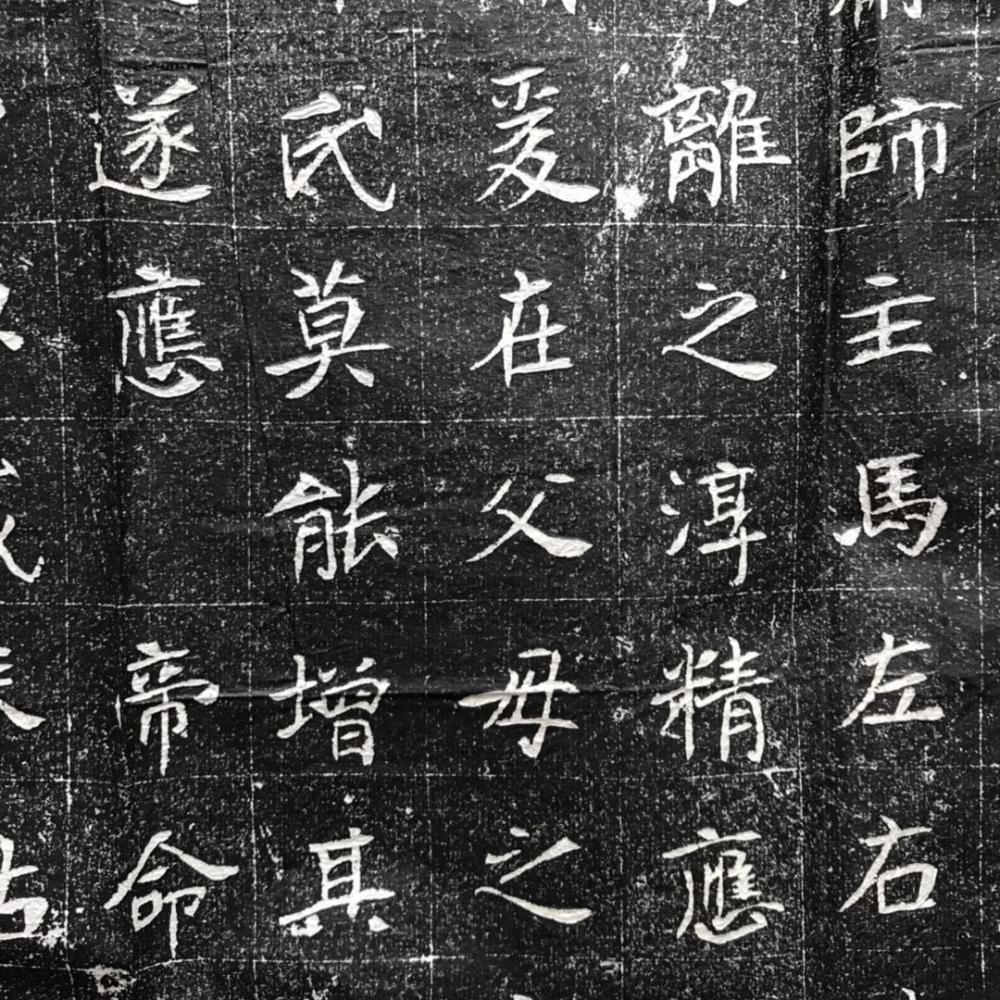 師主馬左右
離之淳精應
爰在父母之
民莫能增其
遂應帝命